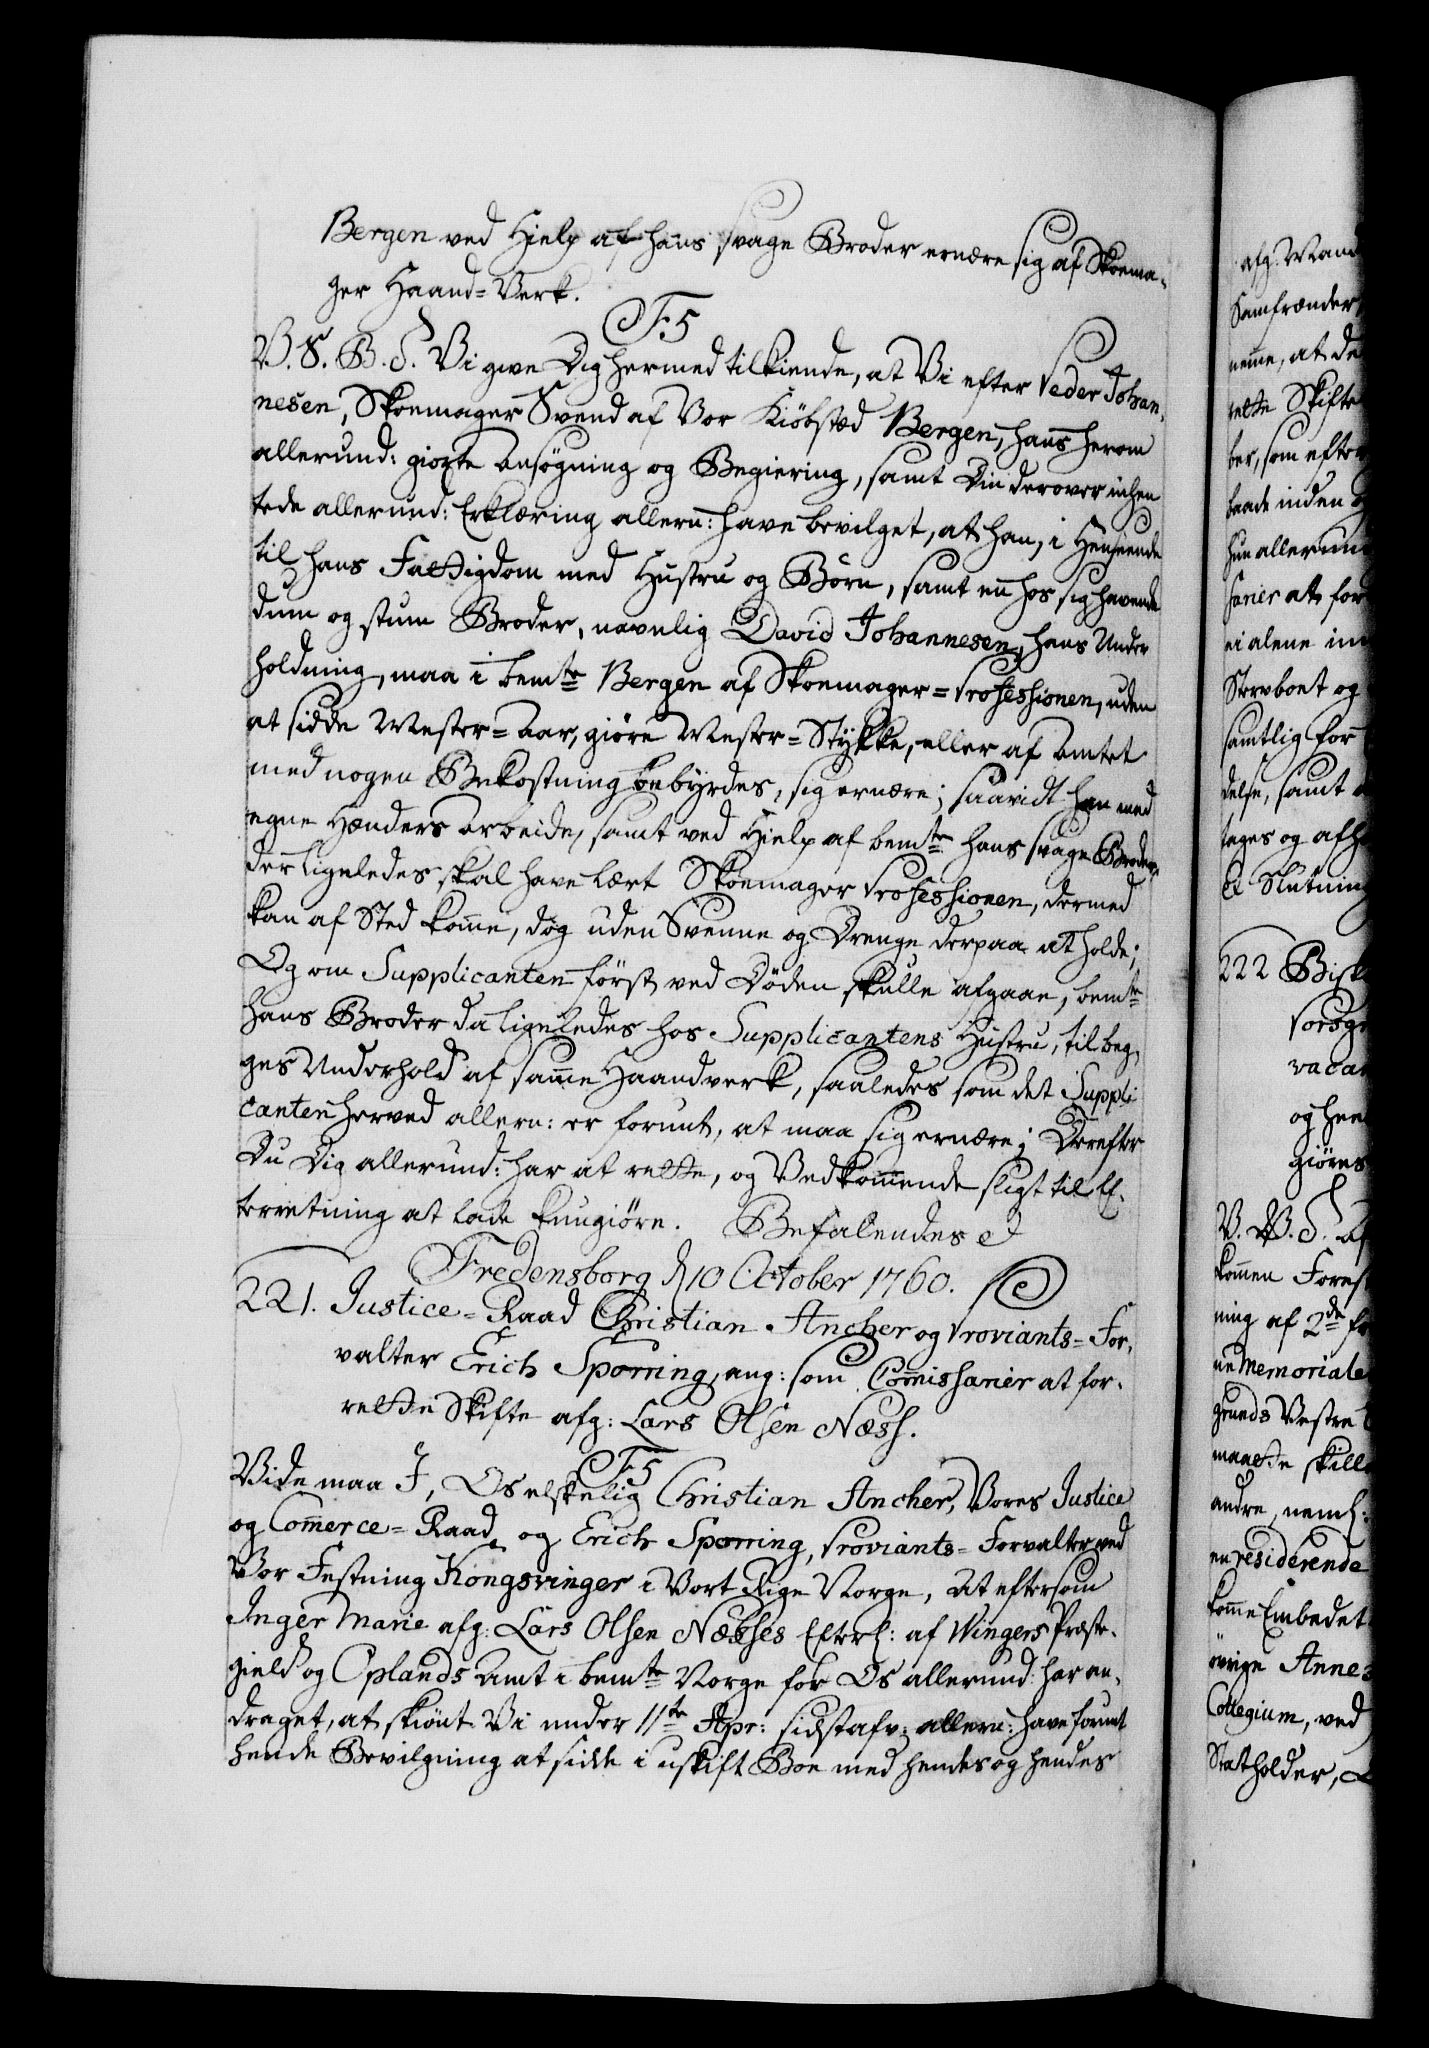 Bergen ved Hielp af hans svage Broder ernære sig af Skoema-
ger Haand-Verk.
F5
V. S. B. S. Vi give Dig hermed tilkiende, at Vi efter Peder Johan-
nesen, Skoemager Svend af Vor Kiöbstæd Bergen, hans herom
allerund: giorte Ansøgning og Begiering, samt Din derover inhen
tede allerund: Erklæring allern: have bevilget, at han, i Henseende
til hans Fattigdom med Hustru og Börn, samt en hos sig havende
dum og stum Broder, navnlig David Johannesen, hans Under
holdning, maa i bemte Bergen af Skoemager-Professionen, uden
at sidde Mester-Aar, giöre Mester-Stykke, eller af Amtet
med nogen Bekostning bebyrdes, sig ernære; saavidt han med
egne Hænders Arbeide, samt ved Hielp af bemte hans svage Broder,
der ligeledes skal have lært Skoemager Professionen, dermed
kan af Sted komme, dog uden Svenne og Drenge derpaa at holde;
Og om Supplicanten først ved Döden skulle afgaae, bemte
hans Broder da ligeledes hos Supplicantens Hustru, til beg-
ges Underhold af samme Haandverk, saaledes som det Suppli
canten herved allern: er forunt, at maa sig ernære; Derefter
Du Dig allerund: har at rette, og Vedkommende sligt til Ef-
terretning at lade kungiöre. Befalendes
Fredensborg d 10 October 1760.
221. Justice-Raad Christian Ancher og Proviants-For-
valter Erich Sporring, ang: som Commissarier at for-
rette Skifte afg: Lars Olsen Næss.
F5
Vide maa I, Os elskelig Christian Ancher, Vores Justice
og Commerce-Raad, og Erich Sporring, Proviants-Forvalter ved
Vor Festning Kongsvinger i Vort Rige Norge, At eftersom
Inger Marie afg: Lars Olsen Næsses Efterl: af Wingers Præste-
gield og Oplands Amt i bemte Norge for Os allerund: har an-
draget, at skiönt Vi under 11te Apr: sidstafv: allern: have forunt
hende Bevilgning at sidde i uskift Boe med hendes og hendes
afg: Mand
Samfrænder
nemme, at de
rette Skifte
ber, som efter
baade inden
hun allerund
sarier at for
ei alene in
Stervboet og
samtlig for
delse, samt
tages og afh
Slutning
222 Bisk
Vorsgr
vacan
og hen
giöres
V. W. S. Af
kommen Fores
ning af 2de
ne Memoriale
grunds Vestre
maatte skill
andre, neml:
en residerende
komme Embedet
övrige Annex
Collegium, ved
Statholder,